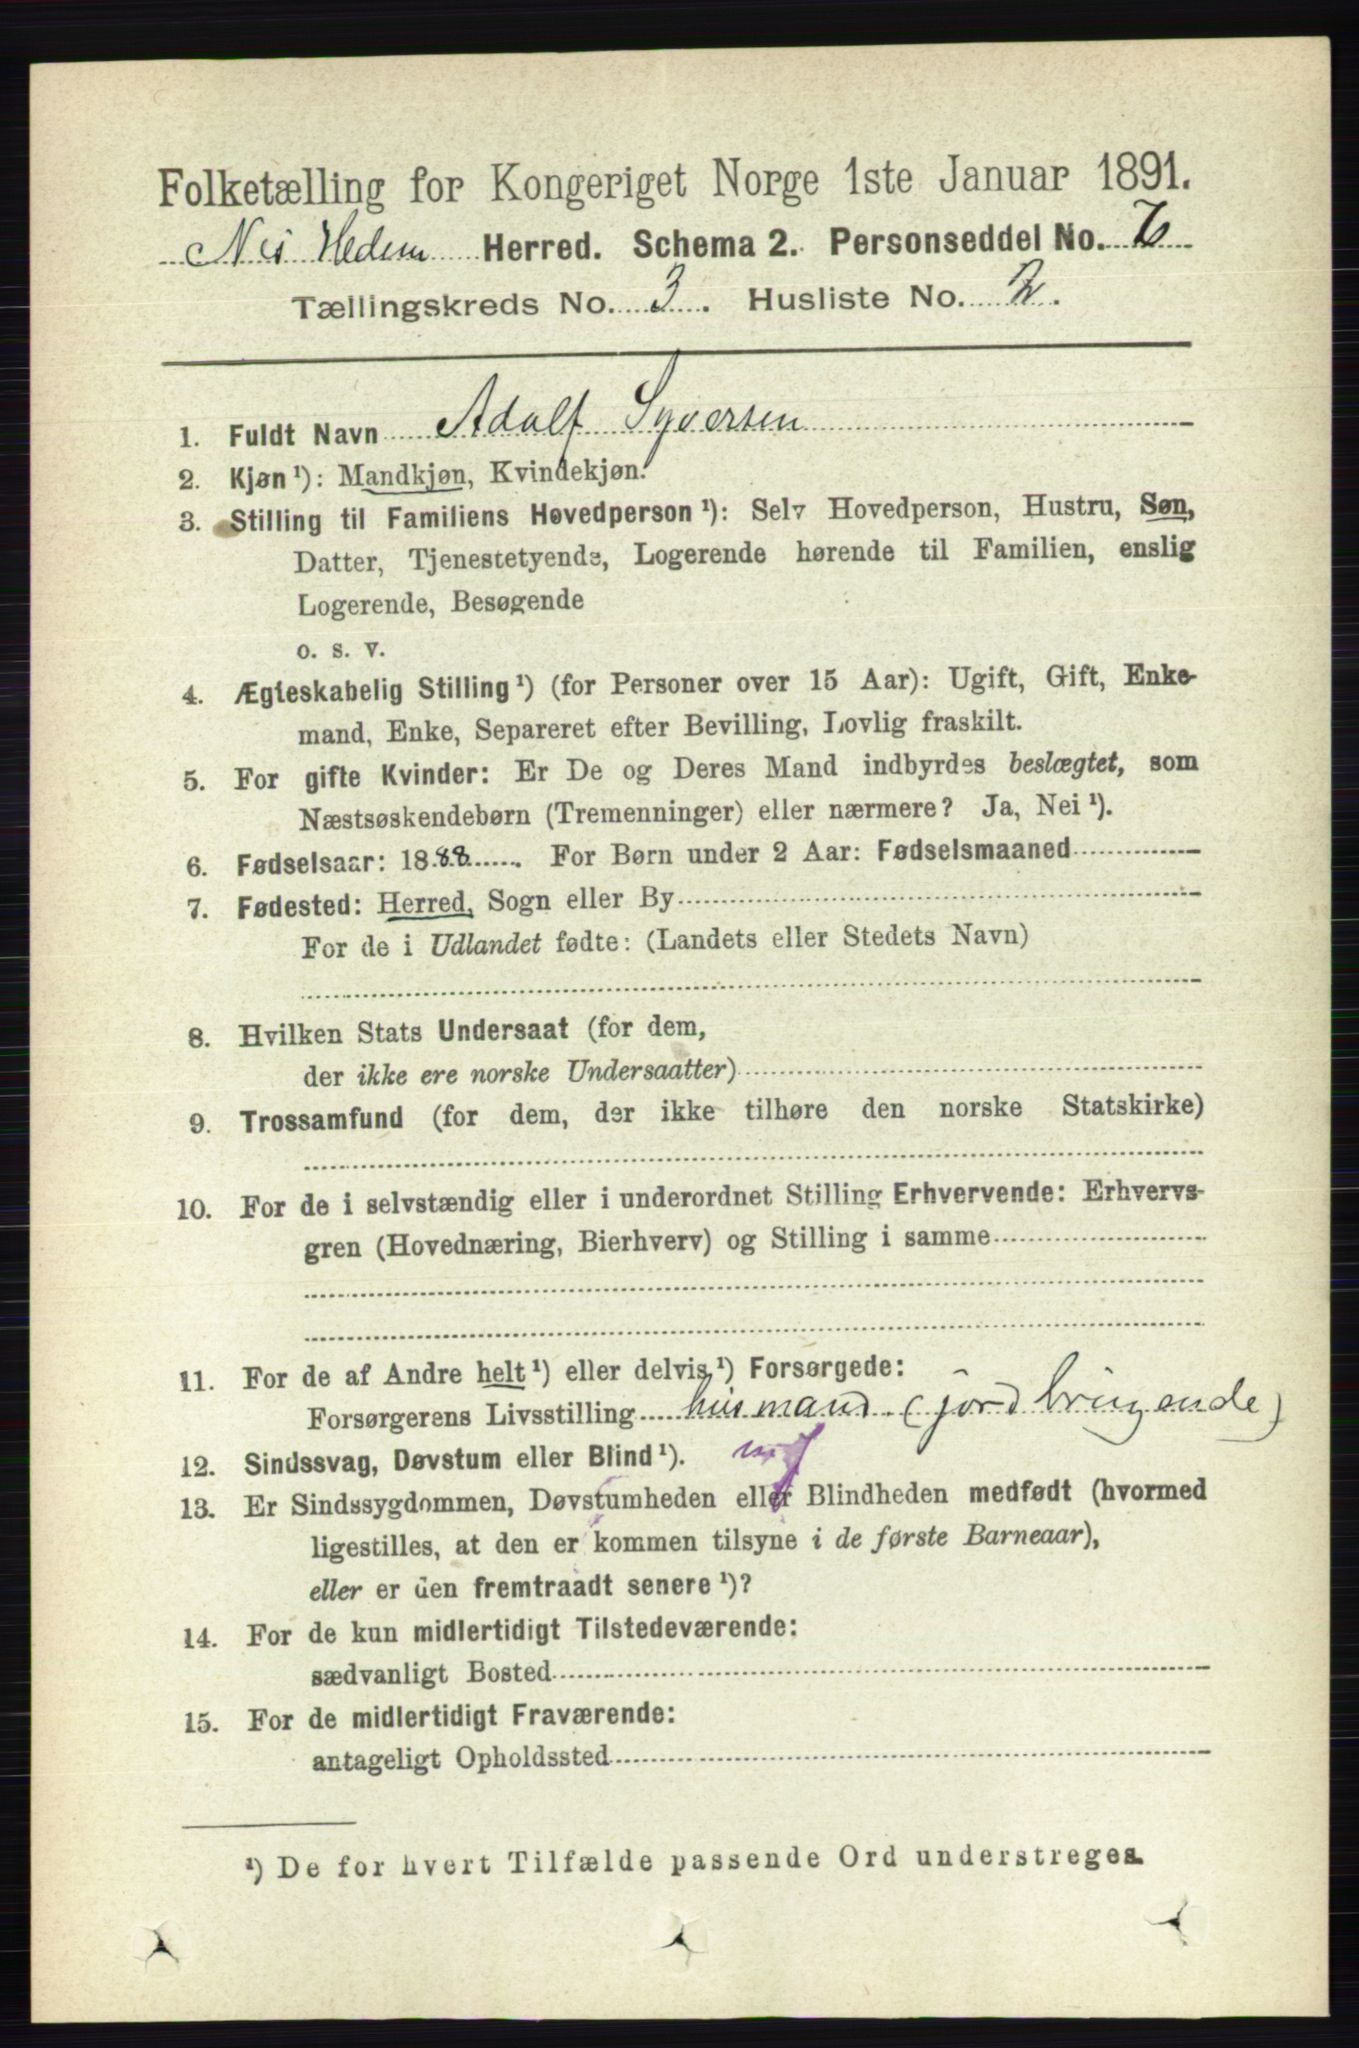 Folketælling for Kongeriget Norge 1ste Januar 1891.
Nes Hedem Herred. Schema 2. Personseddel No.
Tællingskreds No. 3. Husliste No. 2.
1. Fuldt Navn Adolf Syversen
2. Kjøn¹): Mandkjøn, Kvindekjøn.
3. Stilling til Familiens Hovedperson¹): Selv Hovedperson, Hustru, Søn,
Datter, Tjenestetyende, Logerende hørende til Familien, enslig
Logerende, Besøgende
o. s. v.
4. Ægteskabelig Stilling¹) (for Personer over 15 Aar): Ugift, Gift, Enke-
mand, Enke, Separeret efter Bevilling, Lovlig fraskilt.
5. For gifte Kvinder: Er De og Deres Mand indbyrdes beslægtet, som
Næstsøskendebørn (Tremenninger) eller nærmere? Ja, Nei¹).
6. Fødselsaar: 1888. For Børn under 2 Aar: Fødselsmaaned
7. Fødested: Herred, Sogn eller By
For de i Udlandet fødte: (Landets eller Stedets Navn)
8. Hvilken Stats Undersaat (for dem,
der ikke ere norske Undersaatter)
9. Trossamfund (for dem, der ikke tilhøre den norske Statskirke)
10. For de i selvstændig eller i underordnet Stilling Erhvervende: Erhvervs-
gren (Hovednæring, Bierhverv) og Stilling i samme
11. For de af Andre helt¹) eller delvis¹) Forsørgede:
Forsørgerens Livsstilling husmand (jordbrugende)
12. Sindssvag, Døvstum eller Blind¹).
13. Er Sindssygdommen, Døvstumheden eller Blindheden medfødt (hvormed
ligestilles, at den er kommen tilsyne i de første Barneaar),
eller er den fremtraadt senere¹)?
14. For de kun midlertidigt Tilstedeværende:
sædvanligt Bosted
15. For de midlertidigt Fraværende:
antageligt Opholdssted
¹) De for hvert Tilfælde passende Ord understreges.